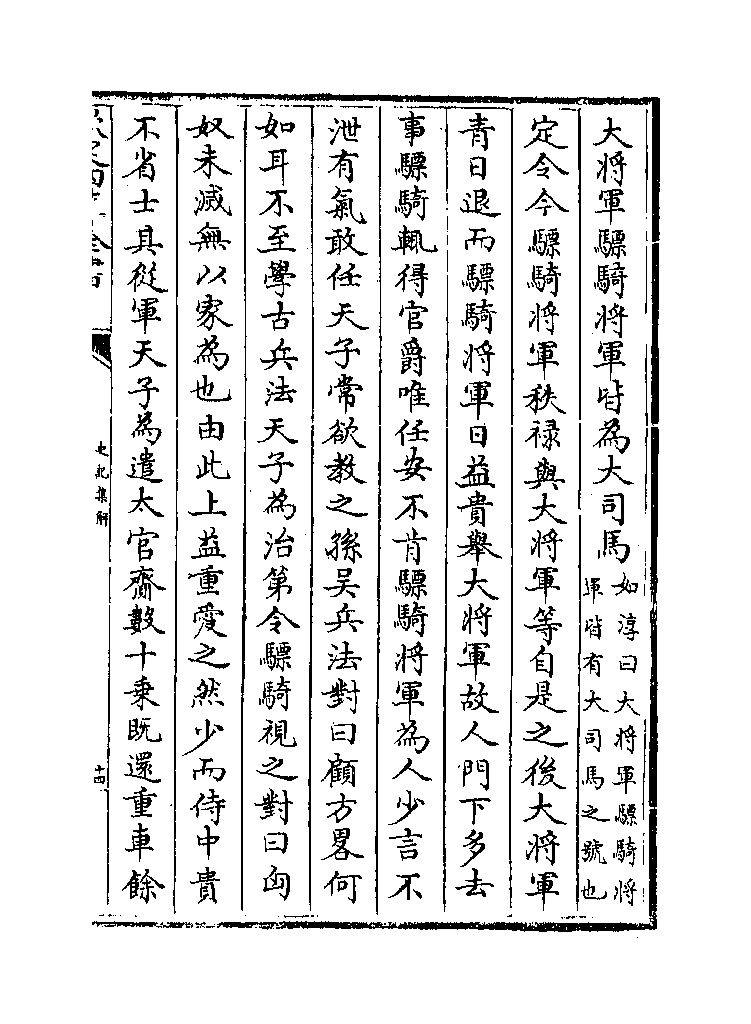 大將軍驃騎將軍皆為大司馬如淳曰大將軍驃騎將
軍皆有大司馬之號也
定令令驃騎將軍秩禄與大將軍等自是之後大將軍
青日退而驃騎將軍日益貴舉大將軍故人門下多去
事驃騎輒得官爵唯任安不肯驃騎將軍為人少言不
泄有氣敢任天子常欲教之孫吴兵法對曰顧方畧何
如耳不至學古兵法天子為治第令驃騎視之對曰匈
奴未滅無以家為也由此上益重愛之然少而侍中貴
不省士其從軍天子為遣太官齎數十乘既還重車餘
史記集解
十四